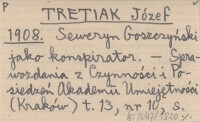 P
TRETIAK Józef
1908. Seweryn Goszczyński
jako konspirator. — Spra-
wozdania z Czynności i Po-
siedzeń Akademii Umiejętności
(Kraków) t. 13, nr 10, s.